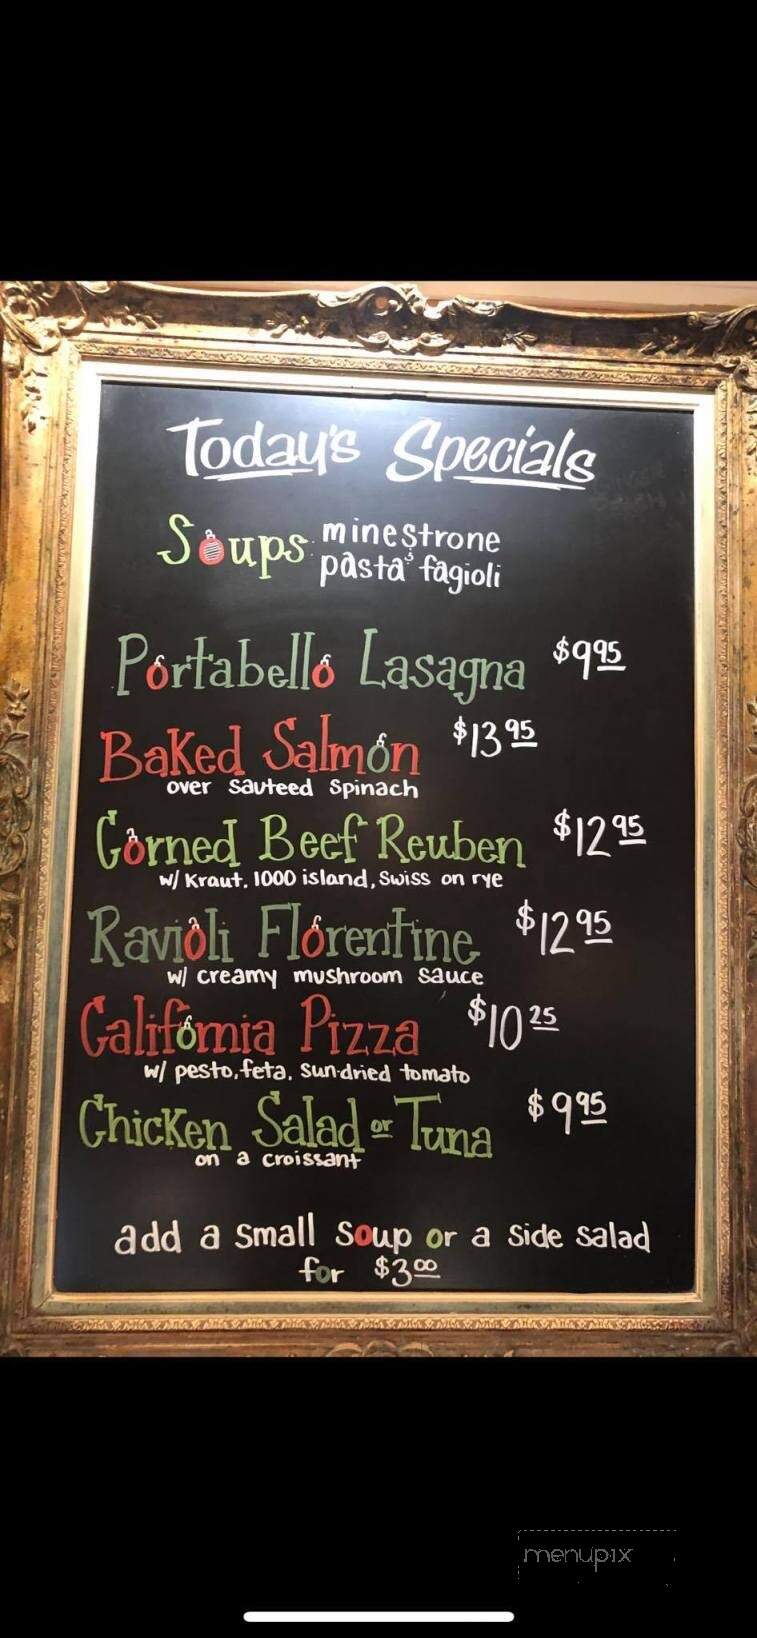 Today's Specials
Soups: minestrone
pasta fagioli
Portabello Lasagna $9.95
Baked Salmon $13.95
over sauteed spinach
Corned Beef Reuben $12.95
w/ Kraut, 1000 island, Swiss on rye
Ravioli Florentine $12.95
w/ creamy mushroom sauce
California Pizza $10.25
w/ pesto, feta, sun-dried tomato
Chicken Salad or Tuna $9.95
on a croissant
add a small soup or a side salad
for $3.00
menupix